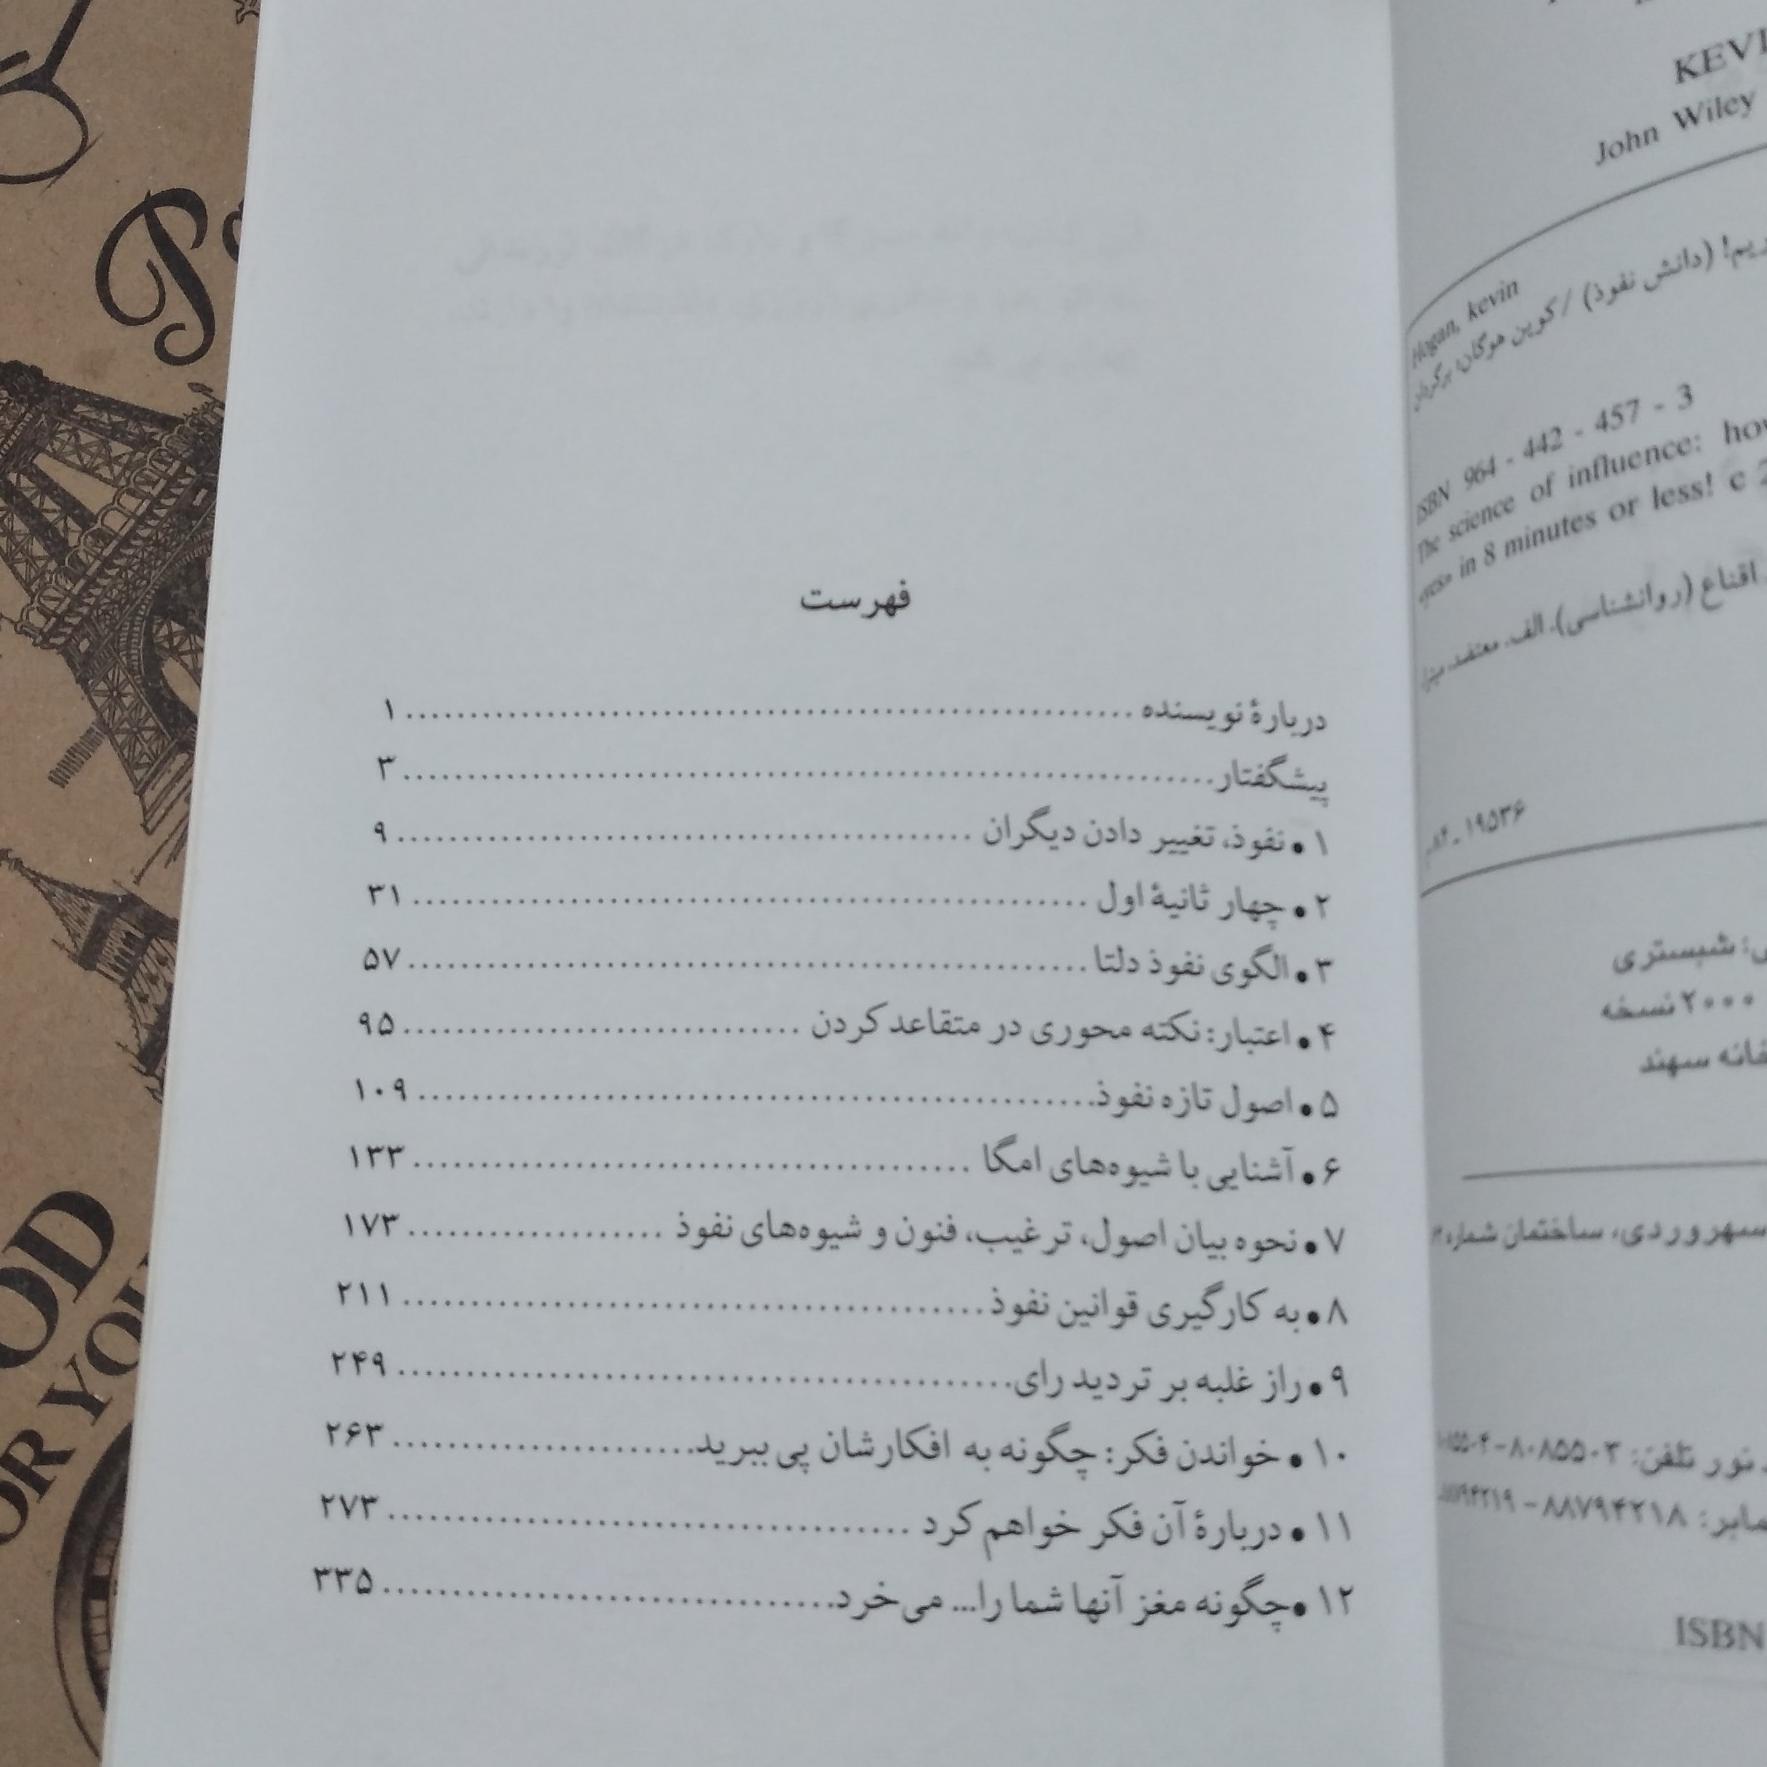 فهرست
دربارهٔ نویسنده ........ ۱
پیشگفتار ........ ۳
۱ • نفوذ، تغییر دادن دیگران ........ ۹
۲ • چهار ثانیهٔ اول ........ ۳۱
۳ • الگوی نفوذ دلتا ........ ۵۷
۴ • اعتبار: نکته محوری در متقاعد کردن ........ ۹۵
۵ • اصول تازه نفوذ ........ ۱۰۹
۶ • آشنایی با شیوه‌های امگا ........ ۱۳۳
۷ • نحوه بیان اصول، ترغیب، فنون و شیوه‌های نفوذ ........ ۱۷۳
۸ • به کارگیری قوانین نفوذ ........ ۲۱۱
۹ • راز غلبه بر تردید رای ........ ۲۴۹
۱۰ • خواندن فکر: چگونه به افکارشان پی ببرید ........ ۲۶۳
۱۱ • دربارهٔ آن فکر خواهم کرد ........ ۲۷۳
۱۲ • چگونه مغز آنها شما را... می‌خرد ........ ۳۳۵
John Wiley
Hogan, kevin
(دانش نفوذ) / کوین هوگان؛ برگردان
ISBN 964 - 442 - 457 - 3
The science of influence:
in 8 minutes or less! c
اقناع (روانشناسی). الف. معتضد، میترا
۱۹۵۳۶
شبستری
۲۰۰۰ نسخه
سهند
سهروردی، ساختمان شماره
نور تلفن: ۸۰۸۵۵۰۳
۸۸۷۹۴۲۱۸ - ۸۸۷۹۴۲۱۹
ISBN
Pa
OD
OR YOU